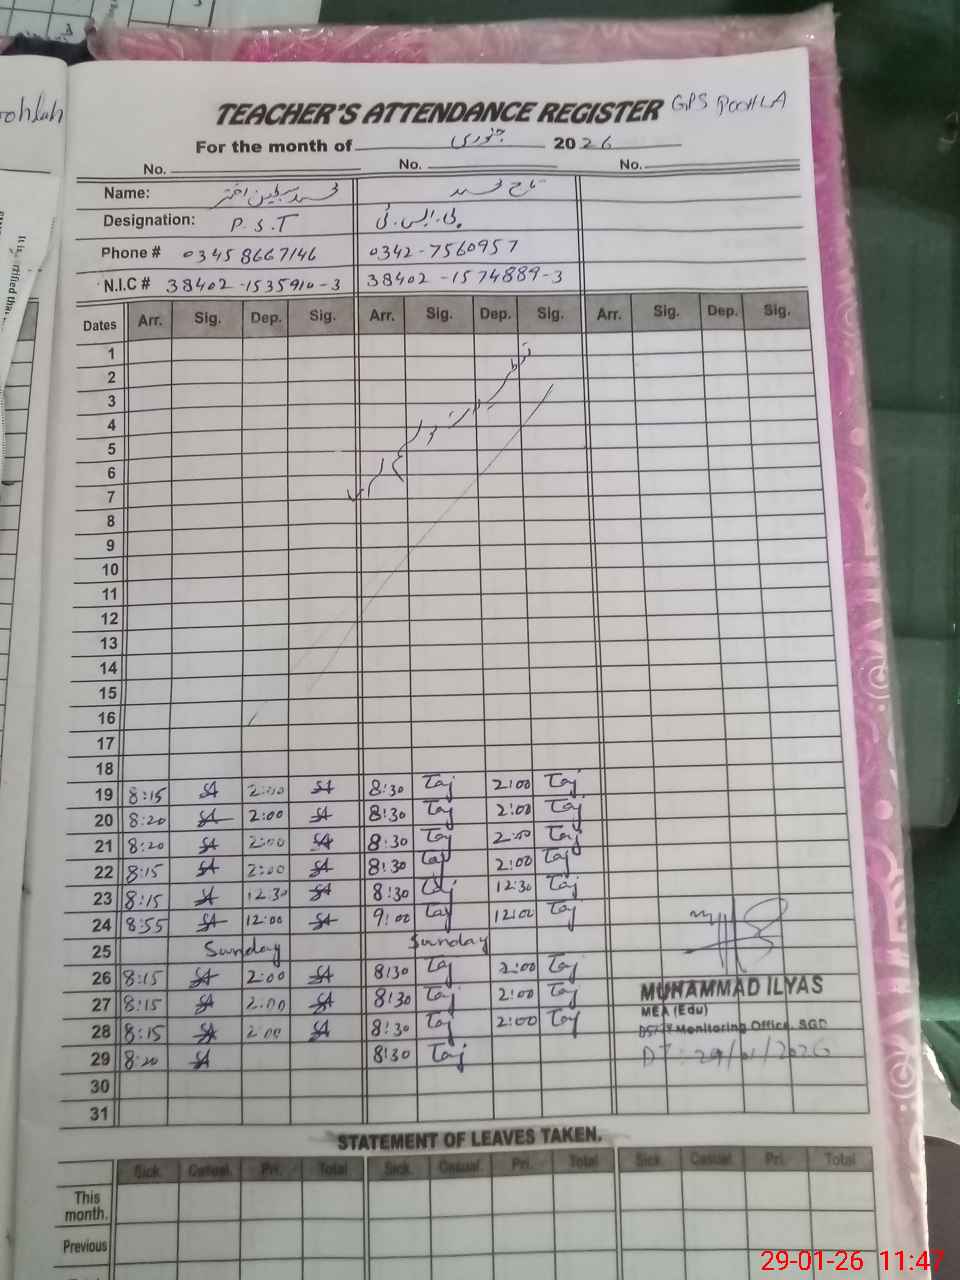 oohlah
TEACHER'S ATTENDANCE REGISTER GPS POOHLA
For the month of جنوری 2026
No. No. No.
Name: محمد سبطین اختر تاج محمد
Designation: P.S.T پی.ایس.ٹی
Phone # 03458667146 0342-7560957
N.I.C # 38402-1535910-3 38402-1574889-3
Dates Arr. Sig. Dep. Sig. Arr. Sig. Dep. Sig. Arr. Sig. Dep. Sig.
1
2
3
4
5
6
7
8
9
10
11
12
13
14
15
16
17
18
19 8:15 SA 2:00 SA 8:30 Taj 2:00 Taj
20 8:20 SA 2:00 SA 8:30 Taj 2:00 Taj
21 8:20 SA 2:00 SA 8:30 Taj 2:00 Taj
22 8:15 SA 2:00 SA 8:30 Taj 2:00 Taj
23 8:15 SA 12:30 SA 8:30 Taj 12:30 Taj
24 8:55 SA 12:00 SA 9:00 Taj 12:00 Taj
25 Sunday Sunday
26 8:15 SA 2:00 SA 8:30 Taj 2:00 Taj
27 8:15 SA 2:00 SA 8:30 Taj 2:00 Taj
28 8:15 SA 2:00 SA 8:30 Taj 2:00 Taj
29 8:20 SA 8:30 Taj
30
31
MUHAMMAD ILYAS
MEA (Edu)
Monitoring Office, SGD
DT: 29/01/2026
STATEMENT OF LEAVES TAKEN.
Sick. Casual. Pri. Total Sick. Casual. Pri. Total Sick. Casual. Pri. Total
This
month.
Previous
29-01-26 11:47